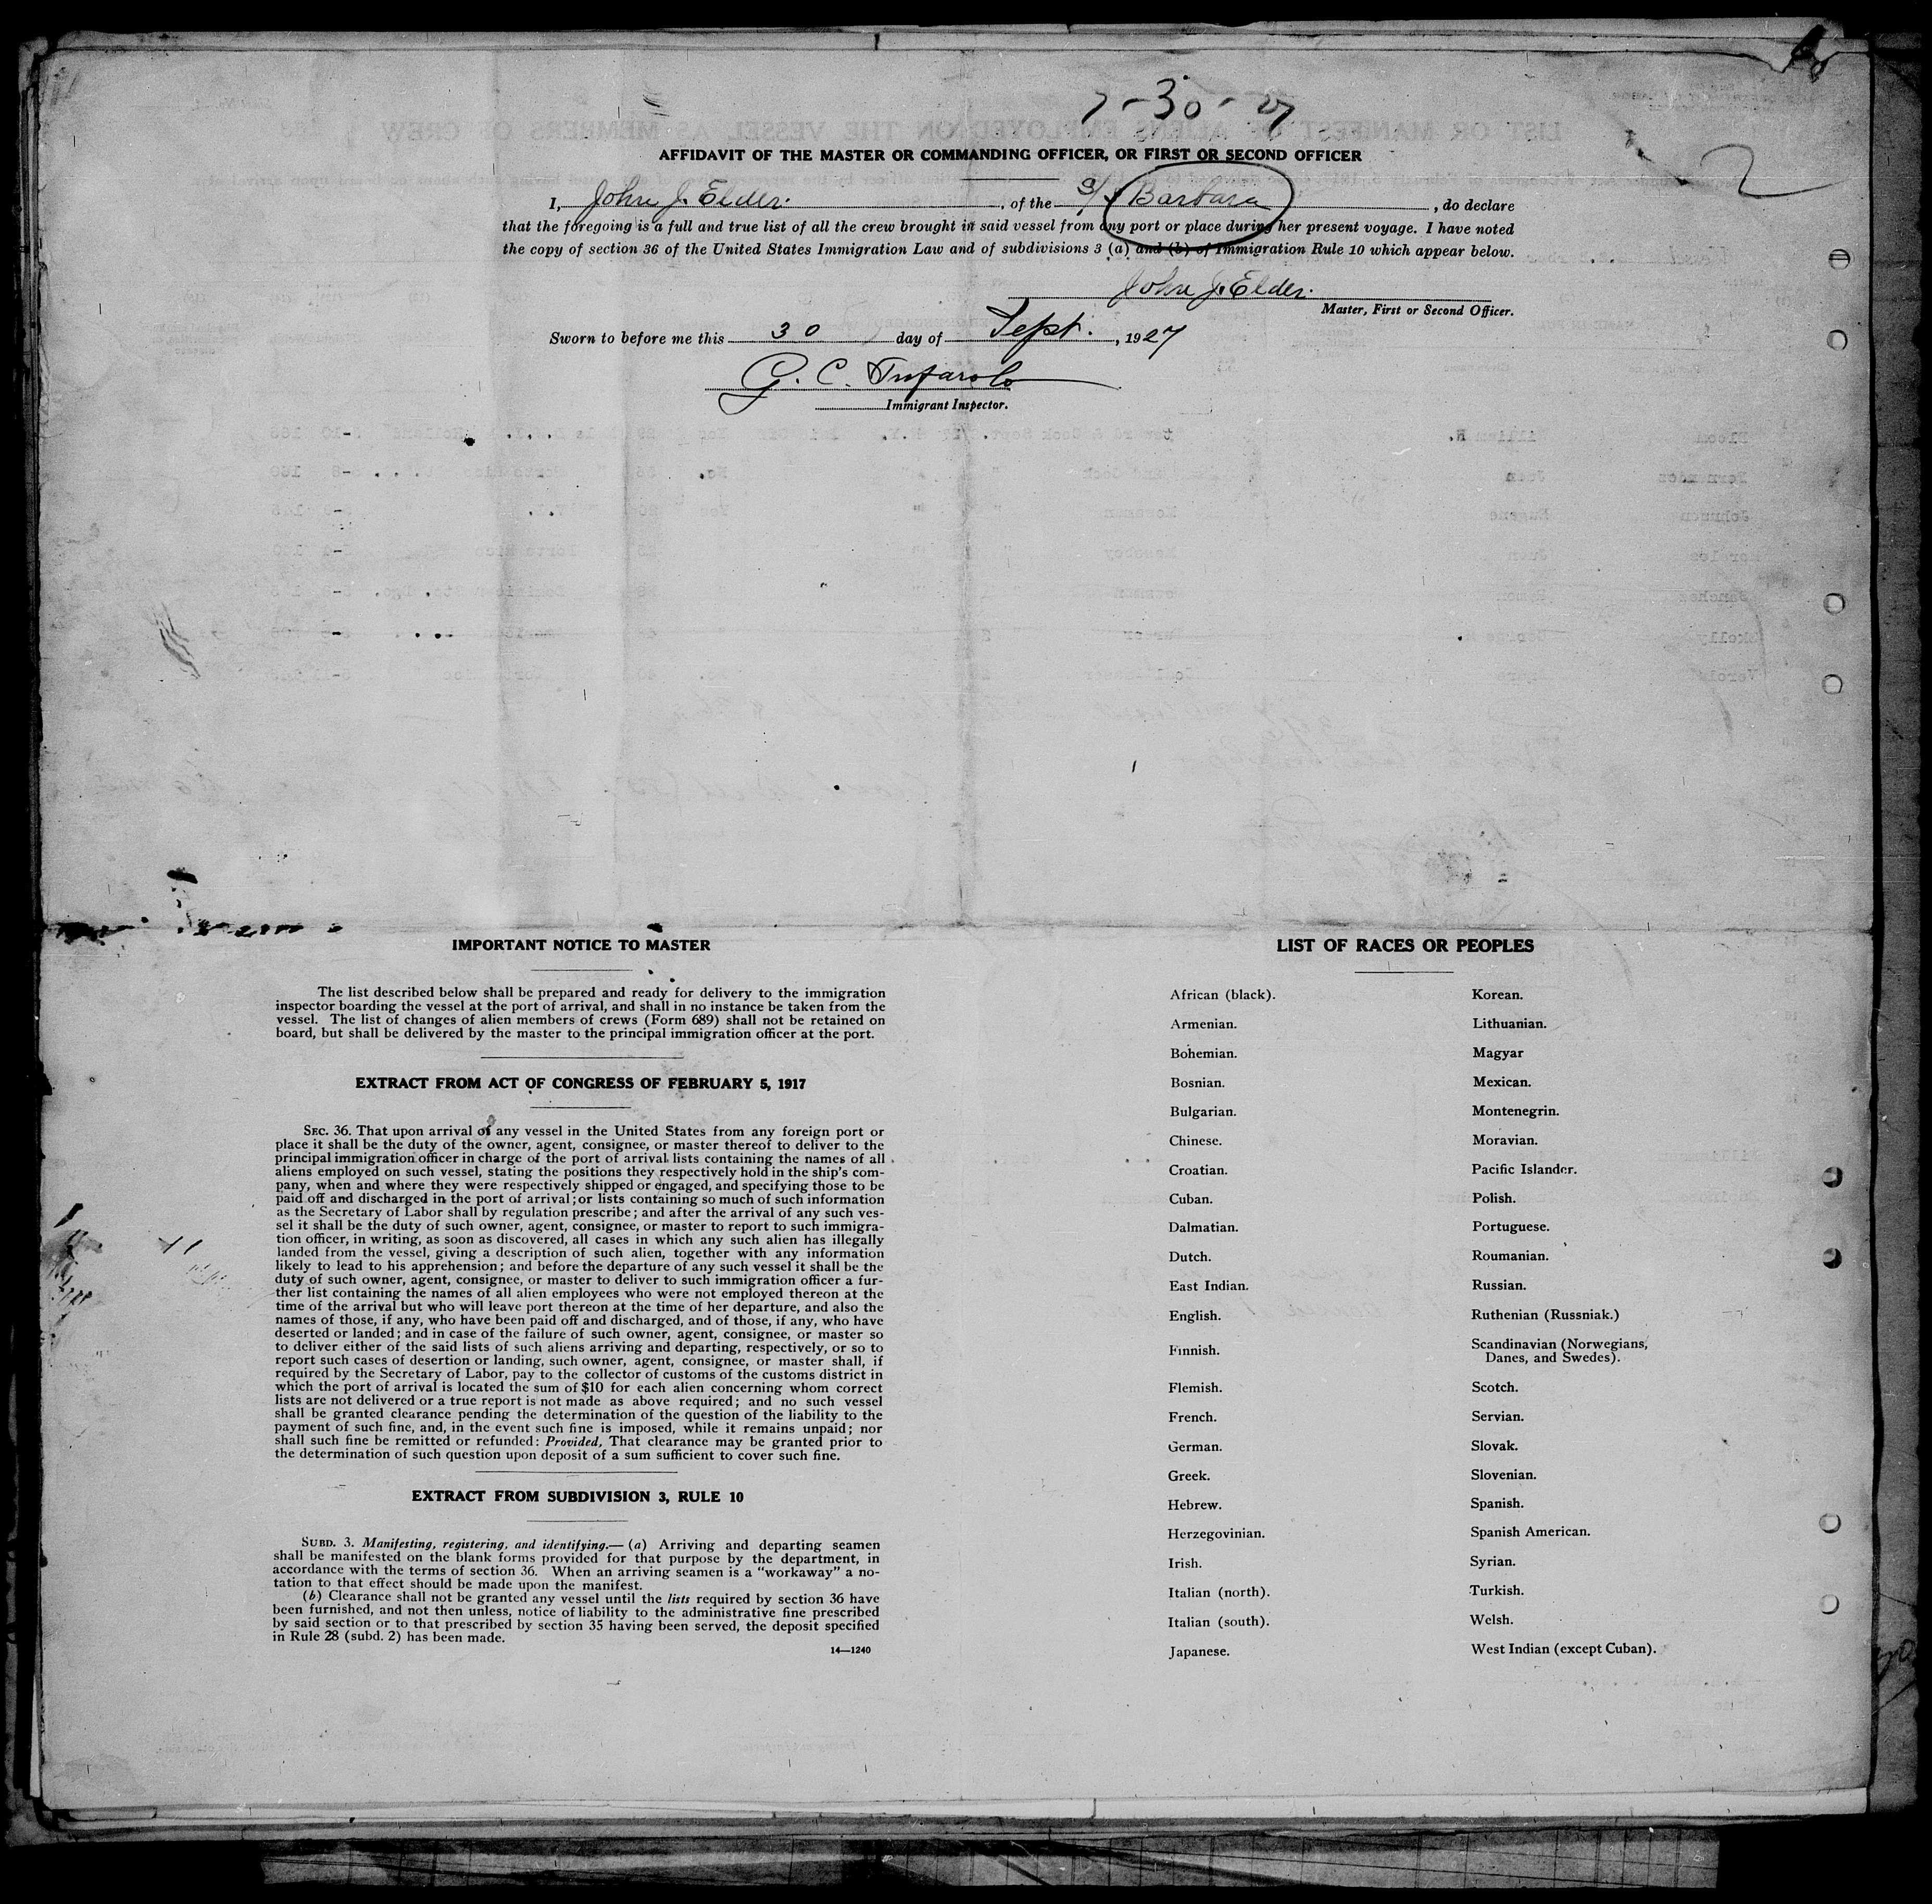 2
AFFIDAVIT OF THE MASTER OR COMMANDING OFFICER, OR FIRST OR SECOND OFFICER
I, John J. Elder. , of the S/S Barbara , do declare
that the foregoing is a full and true list of all the crew brought in said vessel from any port or place during her present voyage. I have noted
the copy of section 36 of the United States Immigration Law and of subdivisions 3 (a) and (b) of Immigration Rule 10 which appear below.
John J. Elder.
Master, First or Second Officer.
Sworn to before me this 30 day of Sept. , 1927
G. C.
Immigrant Inspector.
IMPORTANT NOTICE TO MASTER
The list described below shall be prepared and ready for delivery to the immigration
inspector boarding the vessel at the port of arrival, and shall in no instance be taken from the
vessel. The list of changes of alien members of crews (Form 689) shall not be retained on
board, but shall be delivered by the master to the principal immigration officer at the port.
EXTRACT FROM ACT OF CONGRESS OF FEBRUARY 5, 1917
SEC. 36. That upon arrival of any vessel in the United States from any foreign port or
place it shall be the duty of the owner, agent, consignee, or master thereof to deliver to the
principal immigration officer in charge of the port of arrival lists containing the names of all
aliens employed on such vessel, stating the positions they respectively hold in the ship's com-
pany, when and where they were respectively shipped or engaged, and specifying those to be
paid off and discharged in the port of arrival; or lists containing so much of such information
as the Secretary of Labor shall by regulation prescribe; and after the arrival of any such ves-
sel it shall be the duty of such owner, agent, consignee, or master to report to such immigra-
tion officer, in writing, as soon as discovered, all cases in which any such alien has illegally
landed from the vessel, giving a description of such alien, together with any information
likely to lead to his apprehension; and before the departure of any such vessel it shall be the
duty of such owner, agent, consignee, or master to deliver to such immigration officer a fur-
ther list containing the names of all alien employees who were not employed thereon at the
time of the arrival but who will leave port thereon at the time of her departure, and also the
names of those, if any, who have been paid off and discharged, and of those, if any, who have
deserted or landed; and in case of the failure of such owner, agent, consignee, or master so
to deliver either of the said lists of such aliens arriving and departing, respectively, or so to
report such cases of desertion or landing, such owner, agent, consignee, or master shall, if
required by the Secretary of Labor, pay to the collector of customs of the customs district in
which the port of arrival is located the sum of $10 for each alien concerning whom correct
lists are not delivered or a true report is not made as above required; and no such vessel
shall be granted clearance pending the determination of the question of the liability to the
payment of such fine, and, in the event such fine is imposed, while it remains unpaid; nor
shall such fine be remitted or refunded: Provided, That clearance may be granted prior to
the determination of such question upon deposit of a sum sufficient to cover such fine.
EXTRACT FROM SUBDIVISION 3, RULE 10
SUBD. 3. Manifesting, registering, and identifying.—(a) Arriving and departing seamen
shall be manifested on the blank forms provided for that purpose by the department, in
accordance with the terms of section 36. When an arriving seamen is a "workaway" a no-
tation to that effect should be made upon the manifest.
(b) Clearance shall not be granted any vessel until the lists required by section 36 have
been furnished, and not then unless, notice of liability to the administrative fine prescribed
by said section or to that prescribed by section 35 having been served, the deposit specified
in Rule 28 (subd. 2) has been made.
14—1240
LIST OF RACES OR PEOPLES
African (black).
Armenian.
Bohemian.
Bosnian.
Bulgarian.
Chinese.
Croatian.
Cuban.
Dalmatian.
Dutch.
East Indian.
English.
Finnish.
Flemish.
French.
German.
Greek.
Hebrew.
Herzegovinian.
Irish.
Italian (north).
Italian (south).
Japanese.
Korean.
Lithuanian.
Magyar
Mexican.
Montenegrin.
Moravian.
Pacific Islander.
Polish.
Portuguese.
Roumanian.
Russian.
Ruthenian (Russniak.)
Scandinavian (Norwegians,
Danes, and Swedes).
Scotch.
Servian.
Slovak.
Slovenian.
Spanish.
Spanish American.
Syrian.
Turkish.
Welsh.
West Indian (except Cuban).